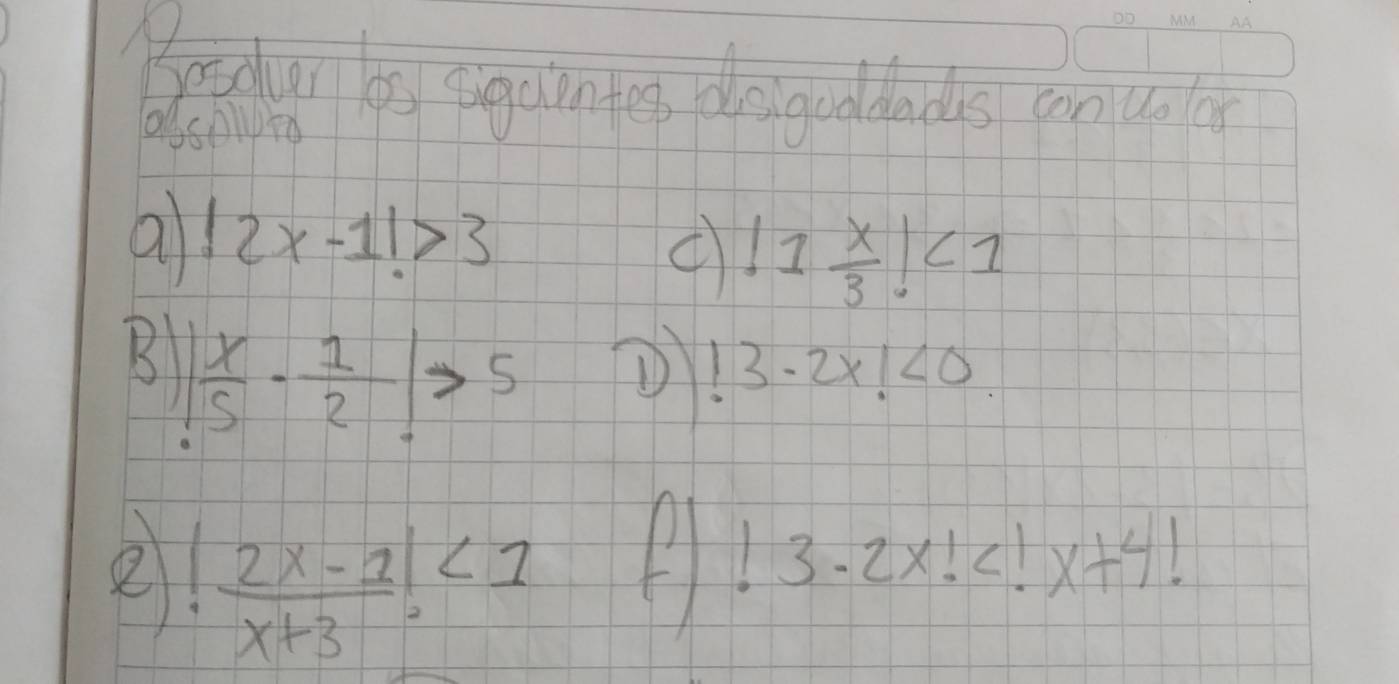 DD MM AA
Resolver los siguientes disigualdades con valor
absoluto
a) !2x-1!>3 c) !1 x/3!<1
B) |x/5 - 1/2|>5 D) !3-2x!<0
e) !2x-1/x+3!<1 f) !3-2x!<!x+4!